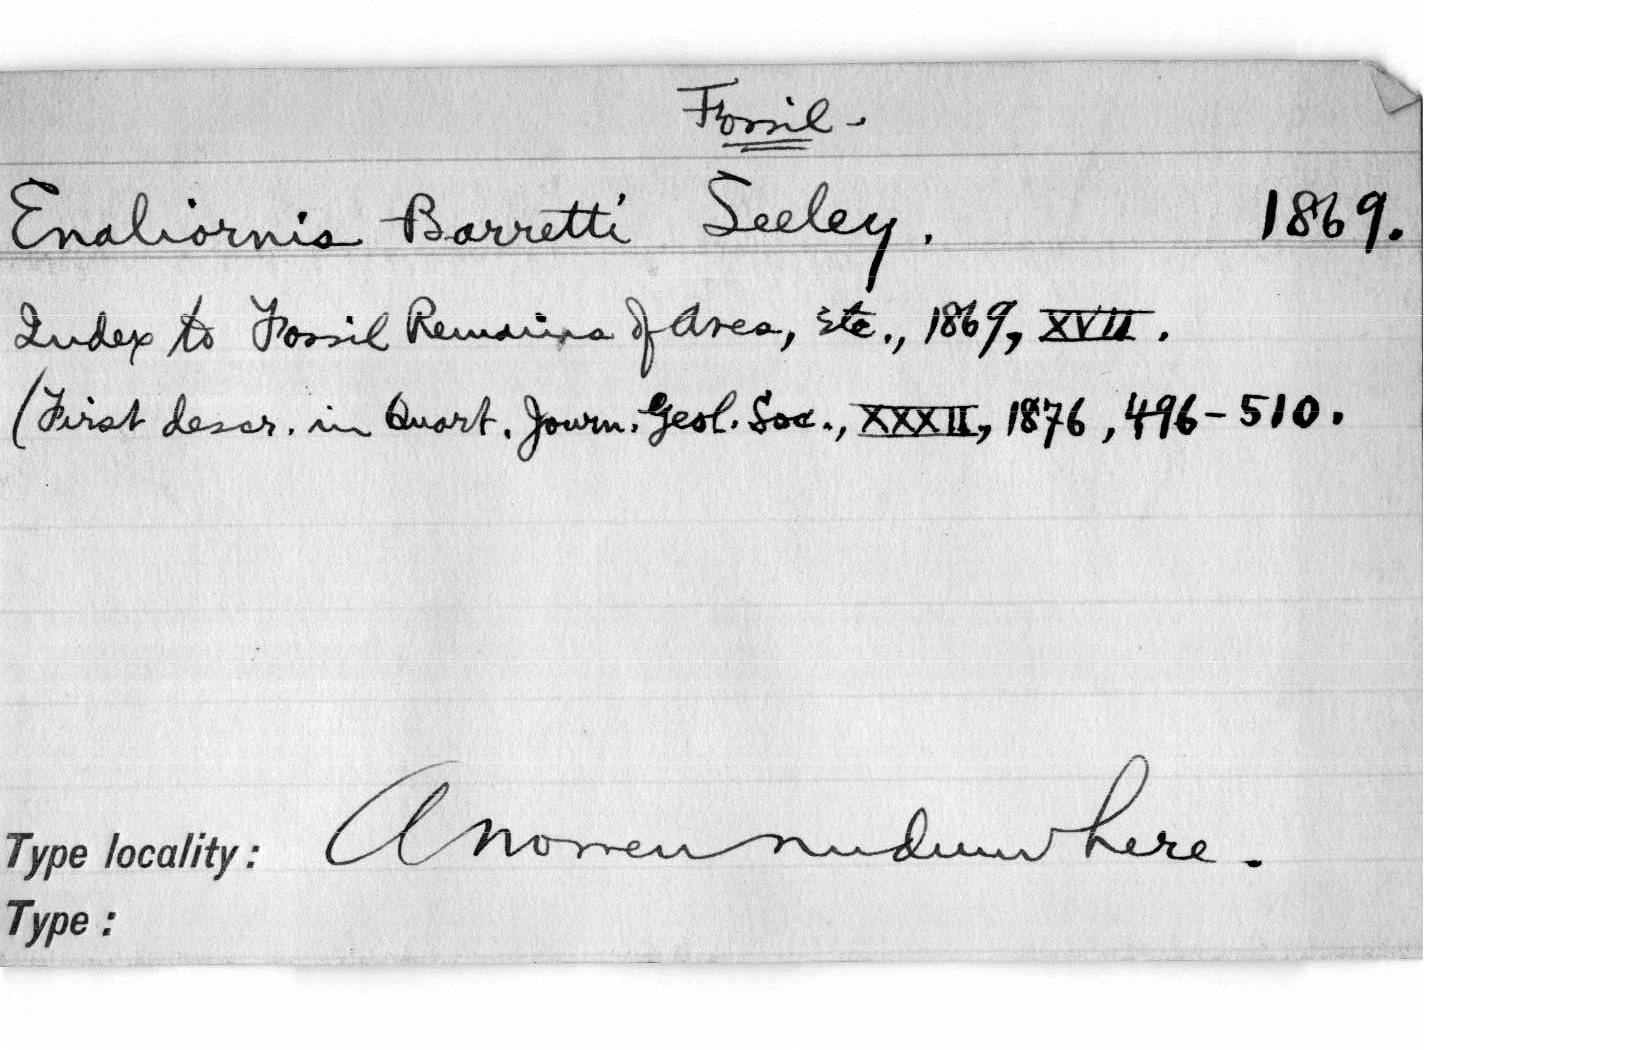 Fossil.
Enaliornis Barretti Seeley. 1869.
Index to Fossil Remains of Aves, etc., 1869, XVII.
(First descr. in Quart. Journ. Geol. Soc., XXXII, 1876, 496-510.
Type locality: A nomen nudum here.
Type: